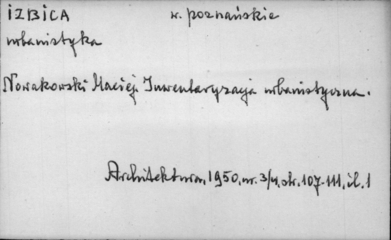 IZBICA w. poznańskie
urbanistyka
Nowakowski Maciej Inwentaryzacja urbanistyczna.
Architektura, 1950, nr. 3/4, str. 107-111, il. 1